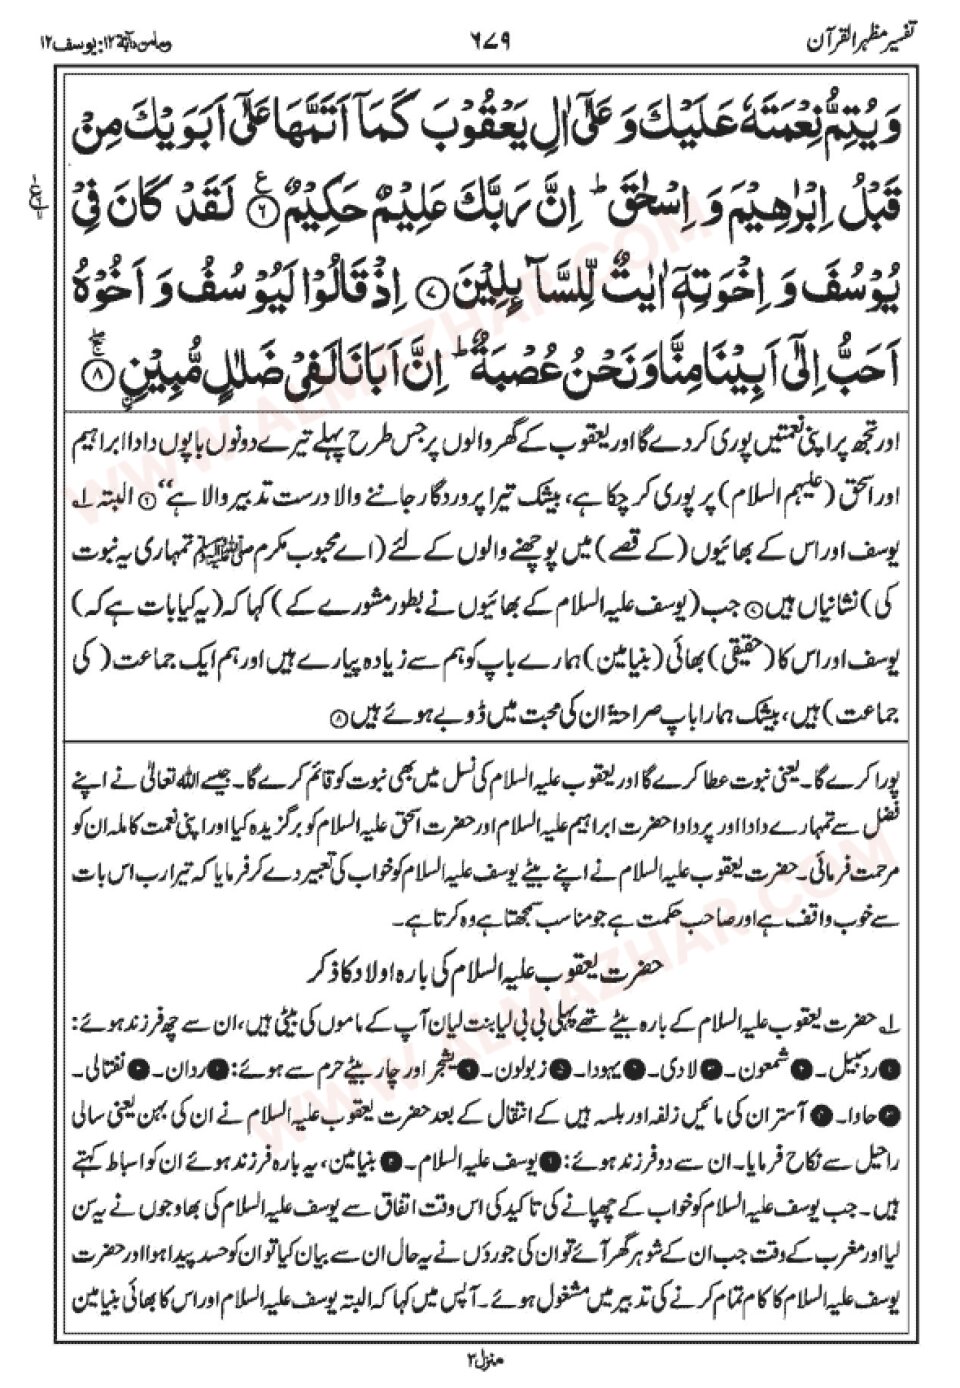 تفسیر مظہر القرآن
۶۷۹
ومامن دآبۃ ۱۲: یوسف ۱۲
وَ یُتِمُّ نِعْمَتَهٗ عَلَیْكَ وَ عَلٰۤی اٰلِ یَعْقُوْبَ كَمَاۤ اَتَمَّهَا عَلٰۤی اَبَوَیْكَ مِنْ
قَبْلُ اِبْرٰهِیْمَ وَ اِسْحٰقَ ؕ اِنَّ رَبَّكَ عَلِیْمٌ حَكِیْمٌ ۶ لَقَدْ كَانَ فِیْ
ع
یُوْسُفَ وَ اِخْوَتِهٖۤ اٰیٰتٌ لِّلسَّآىِٕلِیْنَ ۷ اِذْ قَالُوْا لَیُوْسُفُ وَ اَخُوْهُ
اَحَبُّ اِلٰۤی اَبِیْنَا مِنَّا وَ نَحْنُ عُصْبَةٌ ؕ اِنَّ اَبَانَا لَفِیْ ضَلٰلٍ مُّبِیْنِ ۸
اور تجھ پر اپنی نعمتیں پوری کر دے گا اور یعقوب کے گھر والوں پر جس طرح پہلے تیرے دونوں باپوں دادا ابراہیم
اور اسحق (علیہم السلام) پر پوری کر چکا ہے، بیشک تیرا پروردگار جاننے والا درست تدبیر والا ہے“ ۶ البتہ ۱؎
یوسف اور اس کے بھائیوں (کے قصے) میں پوچھنے والوں کے لئے (اے محبوب مکرم ﷺ تمہاری یہ نبوت
کی) نشانیاں ہیں ۷ جب (یوسف علیہ السلام کے بھائیوں نے بطور مشورے کے) کہا کہ (یہ کیا بات ہے کہ)
یوسف اور اس کا (حقیقی) بھائی (بنیامین) ہمارے باپ کو ہم سے زیادہ پیارے ہیں اور ہم ایک جماعت (کی
جماعت) ہیں، بیشک ہمارا باپ صراحۃً ان کی محبت میں ڈوبے ہوئے ہیں ۸
پورا کرے گا۔ یعنی نبوت عطا کرے گا اور یعقوب علیہ السلام کی نسل میں بھی نبوت کو قائم کرے گا۔ جیسے اللہ تعالیٰ نے اپنے
فضل سے تمہارے دادا اور پردادا حضرت ابراہیم علیہ السلام اور حضرت اسحق علیہ السلام کو برگزیدہ کیا اور اپنی نعمت کاملہ ان کو
مرحمت فرمائی۔ حضرت یعقوب علیہ السلام نے اپنے بیٹے یوسف علیہ السلام کو خواب کی تعبیر دے کر فرمایا کہ تیرا رب اس بات
سے خوب واقف ہے اور صاحب حکمت ہے جو مناسب سمجھتا ہے وہ کرتا ہے۔
حضرت یعقوب علیہ السلام کی بارہ اولاد کا ذکر
۱؎ حضرت یعقوب علیہ السلام کے بارہ بیٹے تھے پہلی بی بی لیا بنت لیان آپ کے ماموں کی بیٹی ہیں، ان سے چھ فرزند ہوئے:
۱ ردبیل۔ ۲ شمعون۔ ۳ لادی۔ ۴ یہودا۔ ۵ زبولون۔ ۶ یشجر اور چار بیٹے حرم سے ہوئے: ۱ ردان۔ ۲ نفتالی۔
۳ حادا۔ ۴ آستر ان کی مائیں زلفہ اور بلسہ ہیں کے انتقال کے بعد حضرت یعقوب علیہ السلام نے ان کی بہن یعنی سالی
راحیل سے نکاح فرمایا۔ ان سے دو فرزند ہوئے: ۱ یوسف علیہ السلام۔ ۲ بنیامین، یہ بارہ فرزند ہوئے ان کو اسباط کہتے
ہیں۔ جب یوسف علیہ السلام کو خواب کے چھپانے کی تاکید کی اس وقت اتفاق سے یوسف علیہ السلام کی بھاوجوں نے یہ سن
لیا اور مغرب کے وقت جب ان کے شوہر گھر آئے تو ان کی جوروٗں نے یہ حال ان سے بیان کیا تو ان کو حسد پیدا ہوا اور حضرت
یوسف علیہ السلام کا کام تمام کرنے کی تدبیر میں مشغول ہوئے۔ آپس میں کہا کہ البتہ یوسف علیہ السلام اور اس کا بھائی بنیامین
منزل ۳
WWW.ALMAZHAR.COM
WWW.ALMAZHAR.COM